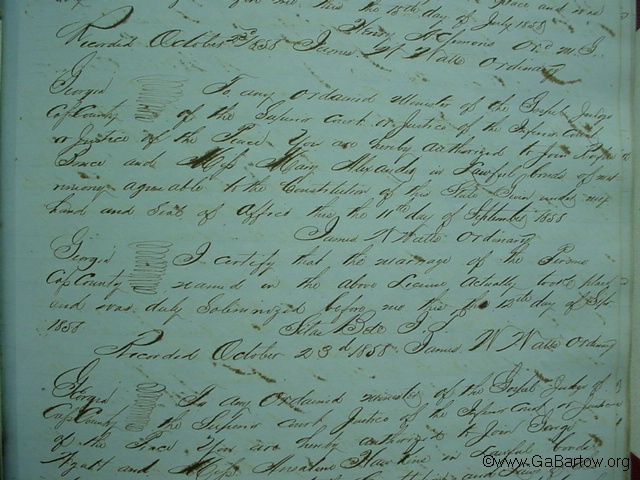 this the 15th day of July 1858
Clemons Ord M. G.
Recorded October 23d 1858 James W Watts Ordinary
Georgia To any ordained Minister of the Gospel Judge
Cass County of the Superior Court or Justice of the Inferior Court
or Justice of the Peace You are hereby authorized to Join
and Miss Mary Alexander in Lawful bonds of mat
rimony agreeable to the Constitution of this State Given under my
hand and Seal of office this the 11th day of September 1858
James W Watts Ordinary
Georgia I certify that the marriage of the Persons
Cass County named in the above License actually took place
and was duly Solemnized before me this 12th day of Sept
1858
Recorded October 23d 1858 James W Watts Ordinary
Georgia To any Ordained minister of the Gospel Judge of
Cass County the Superior Court Justice of the Inferior Court or Justice
of the Peace You are hereby authorized to Join
Wyatt and Miss in Lawful bonds
©www.GaBartow.org